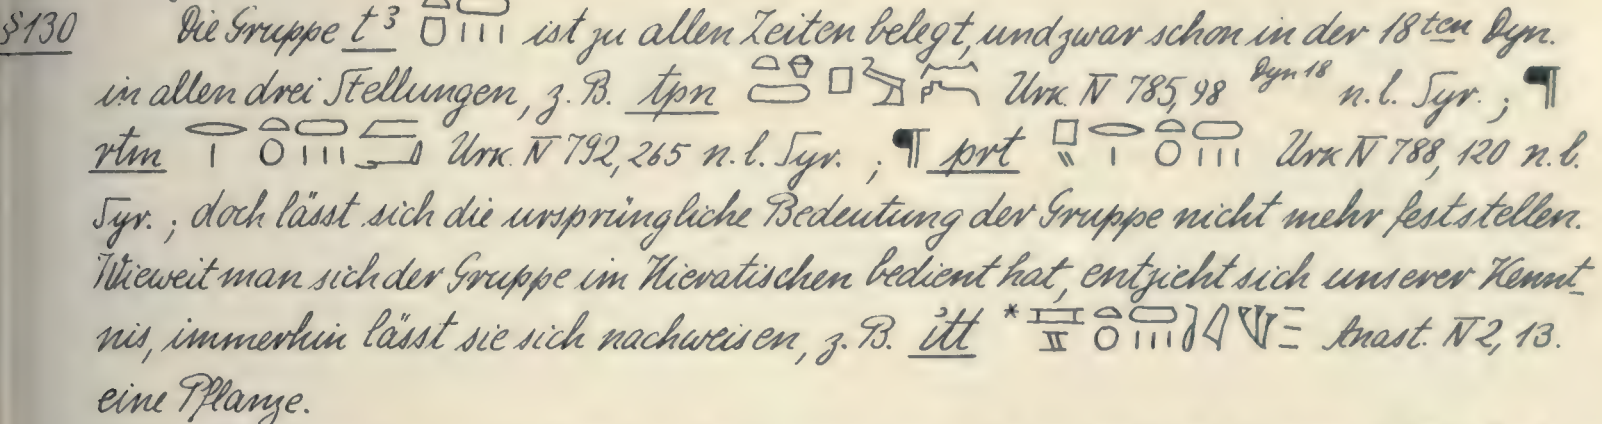 §130 Die Gruppe t³ ist zu allen Zeiten belegt, und zwar schon in der 18ten Dyn.
in allen drei Stellungen, z. B. tpn Urk. IV 785, 98 Dyn 18 n. l. Syr. ; ¶
rtm Urk. IV 792, 265 n. l. Syr. ; ¶ prt Urk IV 788, 120 n. l.
Syr. ; doch lässt sich die ursprüngliche Bedeutung der Gruppe nicht mehr feststellen.
Wieweit man sich der Gruppe im Hieratischen bedient hat, entzieht sich unserer Kennt-
nis, immerhin lässt sie sich nachweisen, z. B. itt * Anast. IV 2, 13.
eine Pflanze.